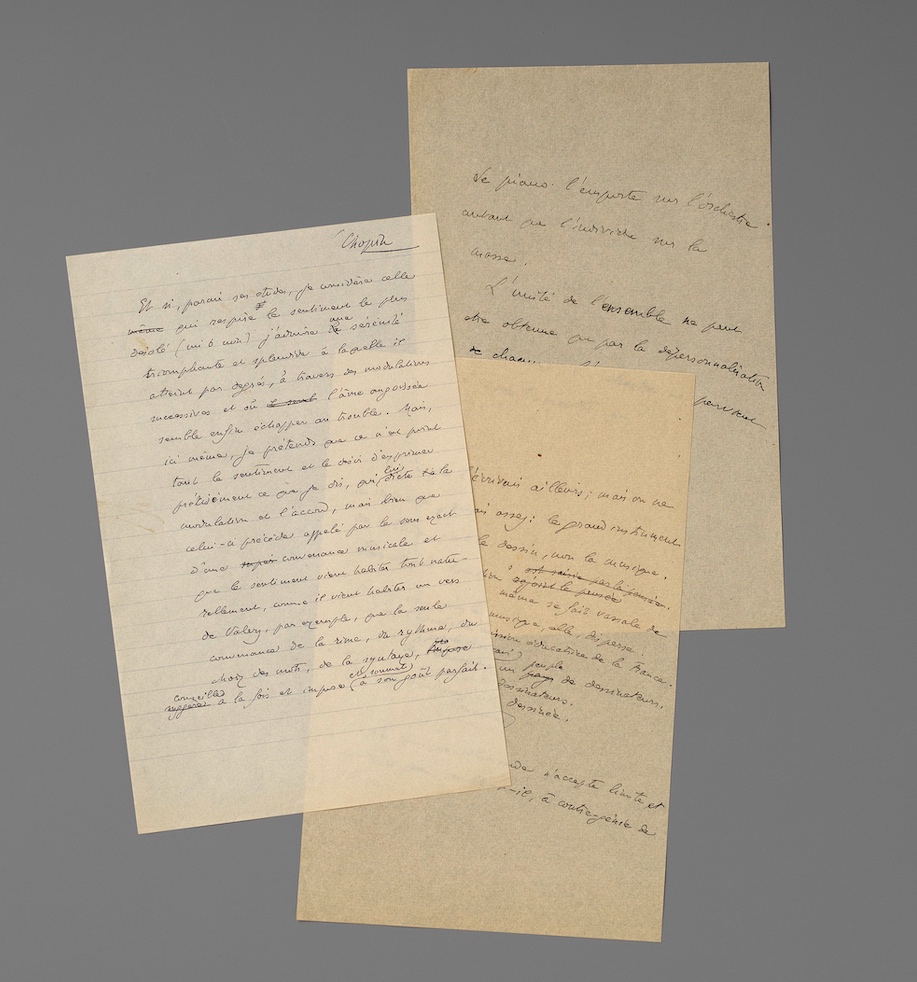 Chopin
Et si, parmi ses études, je considère celle
même qui respire le sentiment le plus
désolé (mi b min) j'admire une sérénité
triomphante et splendide à laquelle il
atteint par degrés, à travers des modulations
successives et où l'âme angoissée
semble enfin échapper au trouble. Mais,
ici même, je prétends que ce n'est point
tant le sentiment et le désir d'exprimer
précisément ce que je dis, qui lui dicte la
modulation et l'accord, mais bien que
celui-ci précède appelé par le sens exact
d'une convenance musicale et
que le sentiment vient habiter tout natu-
rellement, comme il vient habiter un vers
de Valéry, par exemple, que la seule
convenance de la rime, du rythme, du
choix des mots, de la syntaxe, impose
conseillent et soumet
suggérer à la fois et impose à son goût parfait.
Le piano l'emporte sur l'orchestre
autant que l'individu sur la
masse.
L'unité de l'ensemble ne peut
être obtenue que par la dépersonnalisation
de
l'écrivais ailleurs; mais on ne
assez: le grand instrument
le dessin, non la musique.
la pensée
même se fait vassale de
musique, elle disperse.
éducatrice de la France.
un peuple
pays de dessinateurs,
dessinateurs.
dessinée.
s'accepte limite et
à contre-génie de